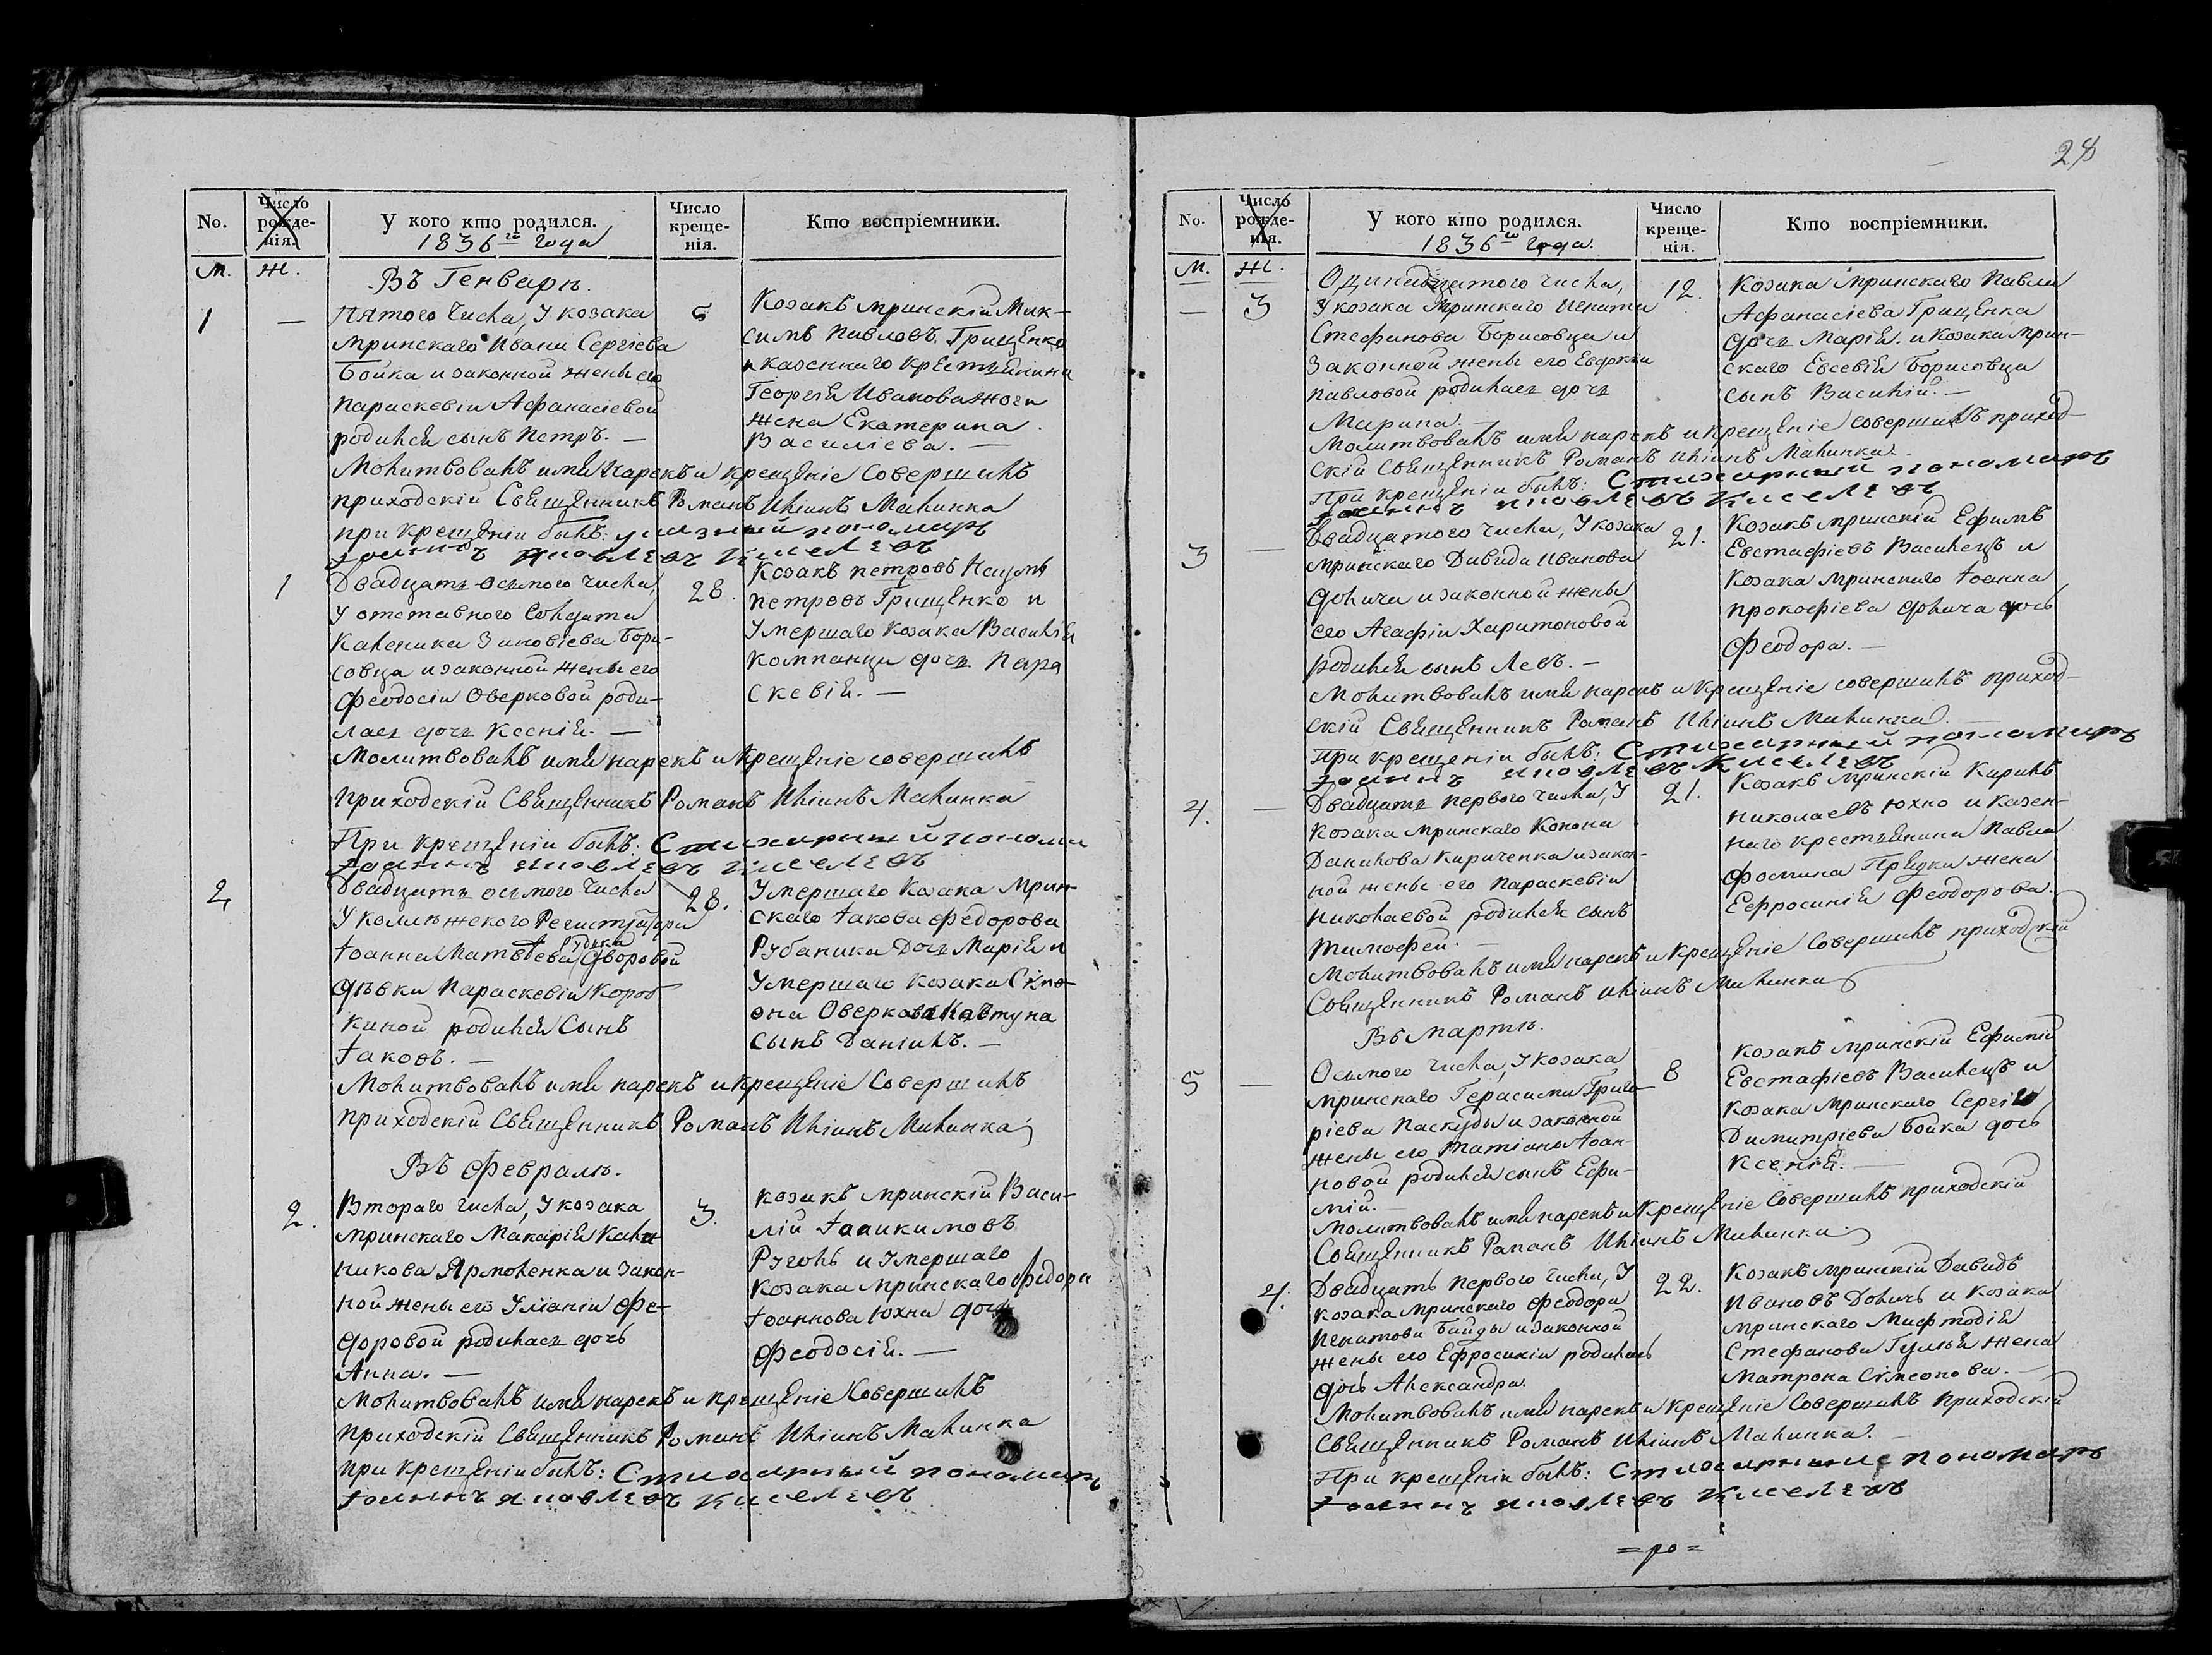 28
No.
Число рожде-нія.
У кого кто родился.
1836го года
Число креще-нія.
Кто воспріемники.
М. Ж.
Въ Генваре.
1 — Пятого числа, У козака
мринскаго Ивана Сергіева
Бойка и законной жены его
Параскевіи Афанасіевой
родился сынъ Петръ. —
6
Козакъ мринскій Мак-
симъ Павловъ Грищенко
и казеннаго крестьянина
Георгія Иванова
жена Екатерина
Василіева. —
Молитвовалъ имя нарекъ и крещеніе совершилъ
приходскій Священникъ Романъ Иліинъ Малинка
при крещеніи былъ: указный пономарь
Іоаннъ Яковлевъ Киселевъ
1 Двадцать осьмого числа,
У отставного солдата
Каленика Зиновіева Бори-
совца и законной жены его
Феодосіи Оверковой роди-
лась дочь Ксенія. —
28.
Козакъ Петровъ Наумъ
Петровъ Грищенко и
Умершаго козака Василія
Компанца дочь Пара
скевія. —
Молитвовалъ имя нарекъ и крещеніе совершилъ
приходскій Священникъ Романъ Иліинъ Малинка
При крещеніи былъ: Стихарный понома
Іоаннъ Яковлевъ Киселевъ
2 Двадцать осьмого числа
У колежского Регистратора
Іоанна Матвеева Рудька дворовой
девки Параскевіи Короб
киной родился Сынъ
Іаковъ. —
28.
Умершаго Козака Мрин-
скаго Іакова Федорова
Рубаника Дочь Марія и
Умершаго козака Симе-
она Оверкова Ковтуна
сынъ Даніилъ. —
Молитвовалъ имя нарекъ и крещеніе Совершилъ
приходскій Священникъ Романъ Иліинъ Малинка
Въ Феврале.
2. Втораго числа, У козака
мринскаго Макарія Кале-
никова Ярмоленка и закон-
ной жены его Уліаніи Фе-
доровой родилась дочь
Анна. —
3.
козакъ мринскій Васи-
лій Іоакимовъ
Руголь и Умершаго
Козака мринскаго Федора
Іоаннова Юхна дочь
Феодосія. —
Молитвовалъ имя нарекъ и крещеніе Совершилъ
приходскій Священникъ Романъ Иліинъ Малинка
при крещеніи былъ: Стихарный пономарь
Іоаннъ Яковлевъ Киселевъ
No.
Число рожде-нія.
У кого кто родился.
1836го года.
Число креще-нія.
Кто воспріемники.
М. Ж.
— 3 Одинадцатого числа,
У козака Мринскаго Игната
Стефанова Борисовца и
Законной жены его Евдокіи
Павловой родилась дочь
Марина. —
12.
Козака мринскаго Павла
Афанасіева Грищенка
дочь Марія. и Козака мрин-
скаго Евсевія Борисовца
сынъ Василій. —
Молитвовалъ имя нарекъ и крещеніе совершилъ приход-
скій Священникъ Романъ Иліинъ Малинка
При крещеніи былъ: Стихарный пономарь
Іоаннъ Яковлевъ Киселевъ
3 — Двадцатого числа, У козака
мринскаго Давида Иванова
Долича и законной жены
его Агафіи Харитоновой
родился сынъ Левъ. —
21.
Козакъ мринскій Ефимъ
Евстафіевъ Василецъ и
Козака мринскаго Іоанна
Прокофіева Долича дочь
Феодора. —
Молитвовалъ имя нарекъ и крещеніе совершилъ приход-
скій Священникъ Романъ Иліинъ Малинка. —
При крещеніи былъ: Стихарный пономарь
Іоаннъ Яковлевъ Киселевъ
4. — Двадцать первого числа, У
Козака мринскаго Конона
Данилова Кириченка и закон-
ной жены его Параскевіи
Николаевой родился сынъ
Тимофей. —
21.
Козакъ мринскій Кирилъ
Николаевъ Юхно и казен-
наго крестьянина Павла
Фомина жена
Ефросинія Феодорова.
Молитвовалъ имя нарекъ и крещеніе Совершилъ приходскій
Священникъ Романъ Иліинъ Малинка
Въ Марте.
5 — Осьмого числа, У козака
мринскаго Герасима Григо-
ріева Паскуды и законной
жены его Татіаны Іоан-
новой родился сынъ Ефи-
мій. —
8
козакъ мринскій Ефимій
Евстафіевъ Василецъ и
козака мринскаго Сергія
Димитріева Бойка дочь
Ксенія. —
Молитвовалъ имя нарекъ и крещеніе Совершилъ приходскій
Священникъ Романъ Иліинъ Малинка
4. Двадцать первого числа, У
козака мринскаго Феодора
Игнатова Байды и законной
жены его Ефросиніи родилась
дочь Александра.
22.
Козакъ мринскій Давидъ
Ивановъ Доличъ и Козака
мринскаго Мифтодія
Стефанова Гульая жена
Матрона Симеонова. —
Молитвовалъ имя нарекъ и крещеніе Совершилъ Приходскій
Священникъ Романъ Иліинъ Малинка. —
При крещеніи былъ: Стихарные пономарь
Іоаннъ Яковлевъ Киселевъ
=ро=